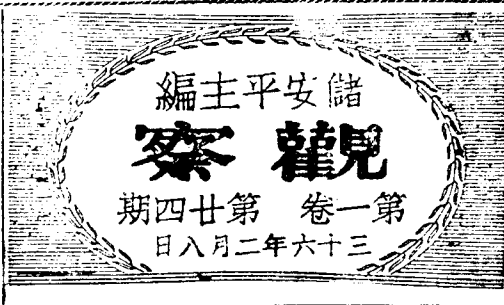 儲安平主編
觀察
第一卷 第廿四期
三十六年二月八日